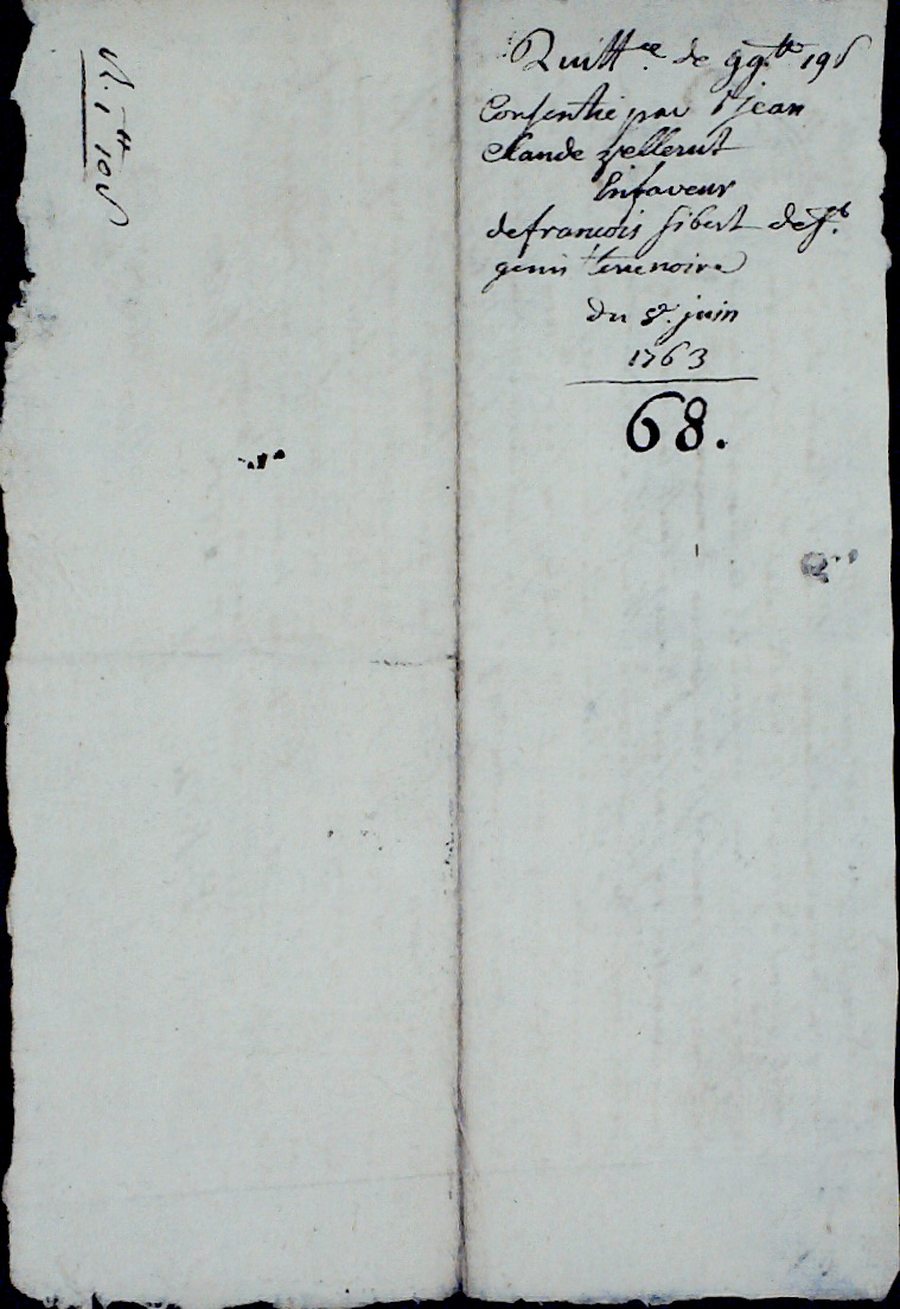 R. 1 tt 10 s
Quittce. de 99 tt 19 s
Consentie par sr jean
claude pellerut
En faveur
de francois sibert de st.
genis terrenoire
du 8e. juin
1763
68.